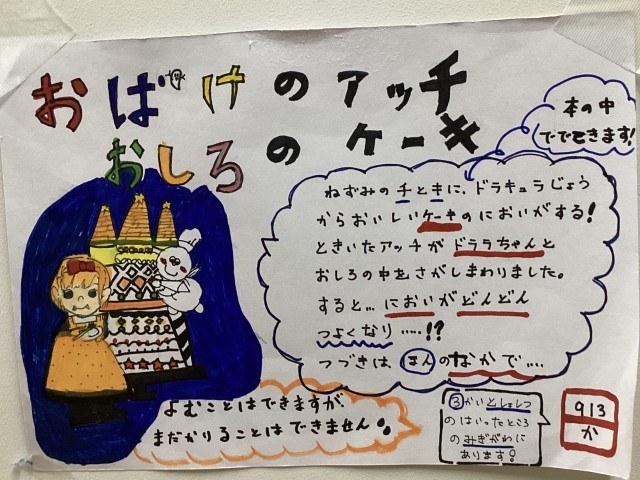 おばけのアッチ
おしろのケーキ
本の中
でてきます!
ねずみのチとキに、ドラキュラじょう
からおいしいケーキのにおいがする!
ときいたアッチがドララちゃんと
おしろの中をさがしまわりました。
すると…においがどんどん
つよくなり……!?
つづきは、ほんのなかで….
よむことはできますが、
まだかりることはできません。
③かいとしょしつ
のはいったところ
のみぎがわに
あります!
913
か